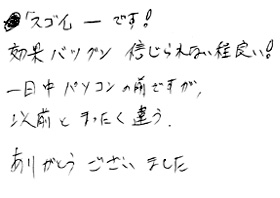 「スゴイーです!
効果バツグン 信じられない程良い!
一日中パソコンの前ですが、
以前とまったく違う.
ありがとうございました